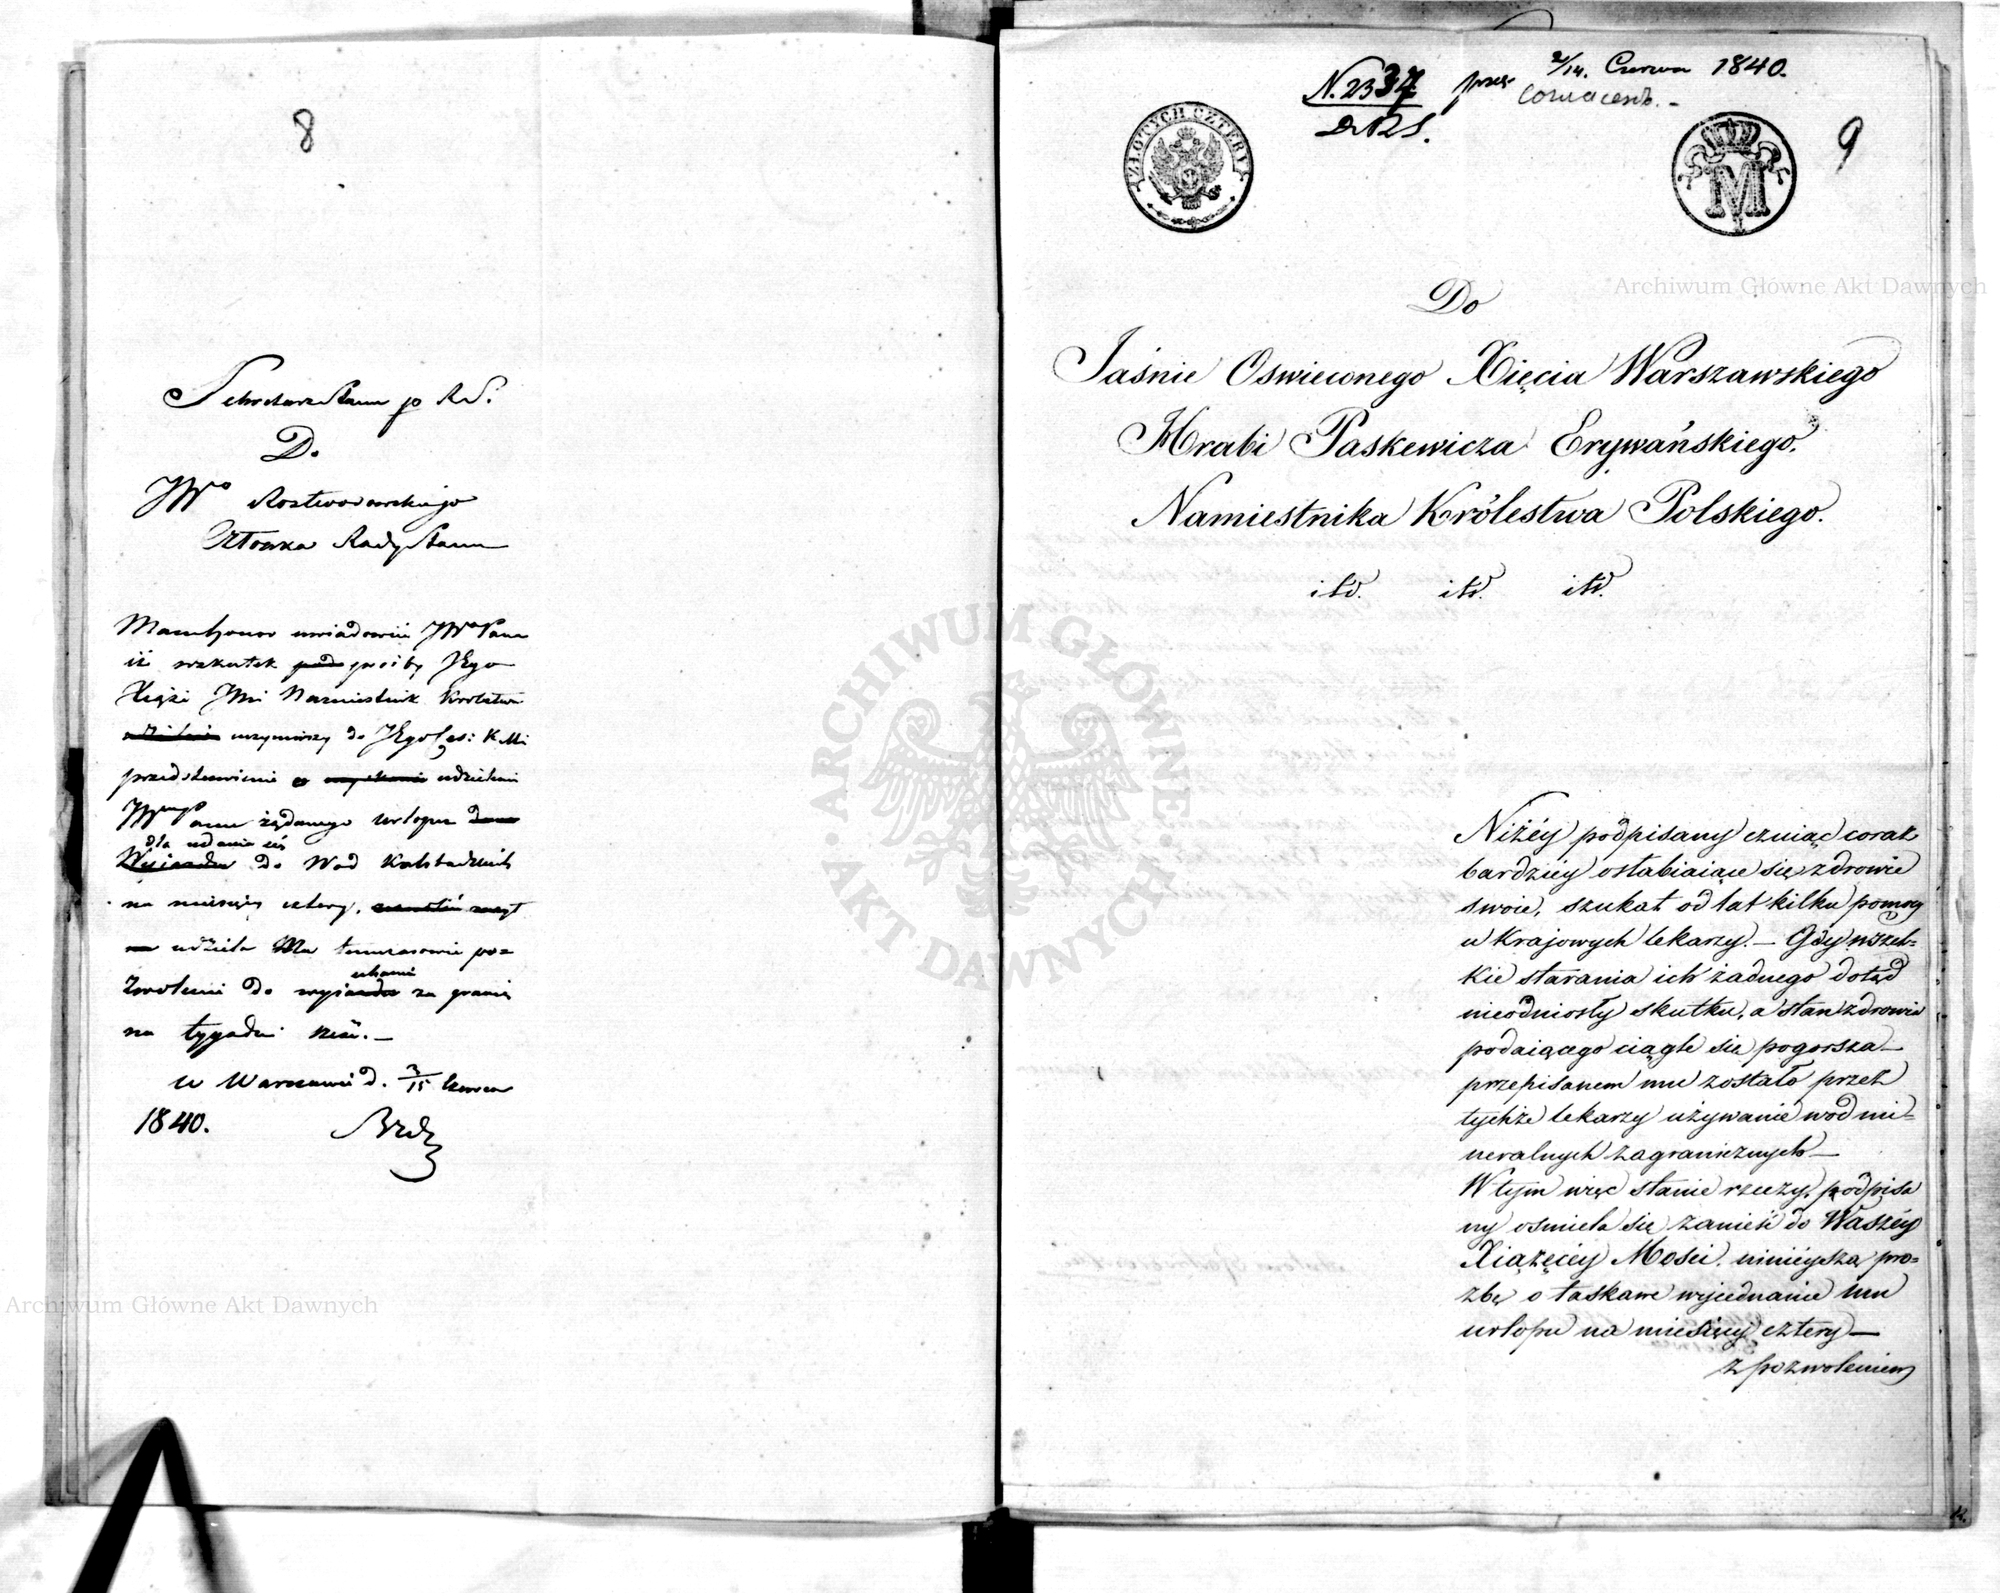 8
Sekretarz Stanu p R.S.
Do
JWo Rostworowskiego
Członka Rady Stanu
Mam honor uwiadomić JWo Pana
iż wskutek prośby Jego
Xiąże JMć Namiestnik Królestwa
uczyniwszy do JEgo Ces: K Mći
przedstawienie o udzielenie
JWmu Panu żądanego urlopu
dla udania się
do Wod Kalsbadzkich
na miesięcy cztery,
udziela Mu tymczasowie po=
zwolenie do
uchania
za granicę
na tygodni sześć.—
w Warszawie d. 3/15 Czerwca
1840.
N. 2337
D.R.S.
prez
2/14. Czerwca 1840.
ZŁOTYCH CZTERY
M
9
Do
Jaśnie Oswieconego Xięcia Warszawskiego
Hrabi Paskewicza Erywańskiego.
Namiestnika Królestwa Polskiego.
itd. itd. itd.
Niżéy podpisany czuiąc coraz
bardziéy osłabiaiące się zdrowie
swoie, szukał od lat kilku pomocy
u Krajowych lekarzy.— Gdy wszel=
kie starania ich żadnego dotąd
nieodniosły skutku, a stan zdrowia
podaiącego ciągle się pogorsza—
przepisanem mu zostało przez
tychże lekarzy używanie wód mi=
neralnych zagranicznych—
W tym więc stanie rzeczy, podpisa
ny ośmiela się zanieść do Waszéy
Xiążęcéy Mości, niniéyszą pro=
zbę o łaskawe wyjednanie mu
urlopu na miesięcy cztery—
z pozwoleniem
Archiwum Główne Akt Dawnych
ARCHIWUM GŁÓWNE AKT DAWNYCH
Archiwum Główne Akt Dawnych